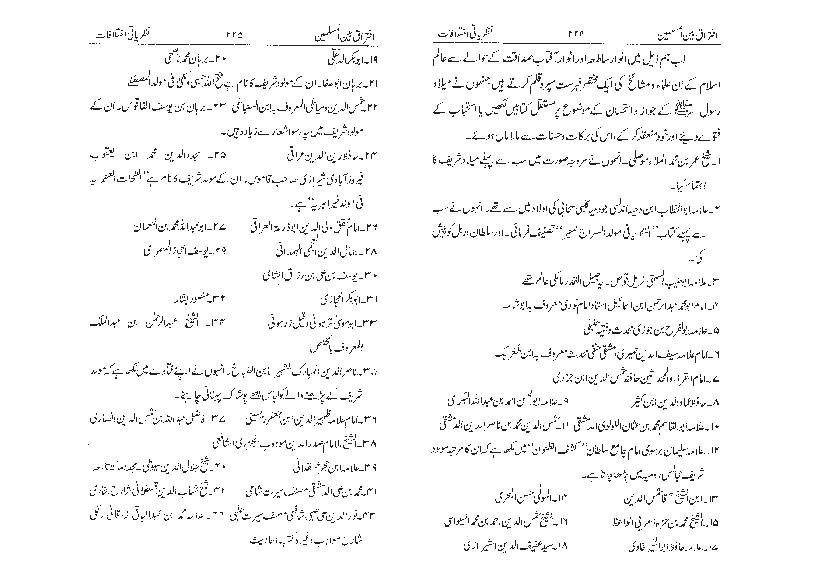 افتراق بین المسلمین ۲۲۴ نظریاتی اختلافات
اب ہم ذیل میں انوار ساطعہ اور انوار آفتاب صداقت کے حوالے سے عالم
اسلام کے ان علماء و مشائخ کی ایک مختصر فہرست سپرد قلم کرتے ہیں جنہوں نے میلاد
رسول ﷺ کے جواز و استحسان کے موضوع پر مستقل کتابیں لکھیں یا استحباب کے
فتوے دیئے اور خود منعقد کر کے، اس کی برکات و حسنات سے مالا مال ہوئے۔
۱۔ شیخ عمر بن محمد الملا موصلی۔ انہوں نے مروجہ صورت میں سب سے پہلے میلاد شریف کا
اہتمام کیا۔
۲۔ علامہ ابو الخطاب ابن دحیہ اندلسی جو دحیہ کلبی صحابی کی اولاد میں سے تھے۔ انہوں نے سب
سے پہلے کتاب "التنویر فی مولد السراج المنیر" تصنیف فرمائی۔ اور سلطان اربل کو پیش
کی۔
۳۔ علامہ ابو طیب السبتی نزیل قوص۔ یہ جلیل القدر مالکی عالم تھے
۴۔ امام ابو محمد عبدالرحمن ابن اسماعیل استاد امام نووی معروف بہ ابو شامہ
۵۔ علامہ ابو الفرح بن جوزی محدث و فقیہ حنبلی
۶۔ امام علامہ سیف الدین حمیری دمشقی حنفی محدث معروف بہ ابن طغربک
۷۔ امام القراء والمحدثین حافظ شمس الدین ابن جزری
۸۔ حافظ عماد الدین ابن کثیر ۹۔ علامہ ابو الحسن احمد بن عبداللہ البکری
۱۰۔ علامہ ابو القاسم محمد بن عثمان اللولوی الدمشقی ۱۱۔ شمس الدین محمد بن ناصر الدین الدمشقی
۱۲۔ علامہ سلیمان برسوی امام جامع سلطان "کشف الظنون" میں لکھا ہے کہ ان کا مرتبہ مولود
شریف مجالس رومیہ میں پڑھا جاتا ہے۔
۱۳۔ ابن الشیخ آقا شمس الدین ۱۴۔ المولی حسن البحری
۱۵۔ الشیخ محمد بن حمزہ العربی الواعظ ۱۶۔ الشیخ شمس الدین احمد بن محمد السیواسی
۱۷۔ علامہ حافظ ابو الخیر سخاوی ۱۸۔ سید عفیف الدین الشیرازی
افتراق بین المسلمین ۲۲۵ نظریاتی اختلافات
۱۹۔ ابوبکر الدنقلی ۲۰۔ برہان محمد ناصحی
۲۱۔ برہان ابو صفا۔ ان کے مولود شریف کا نام ہے فتح اللہ حسبی و کفی فی مولد المصطفیٰ
۲۲۔ شمس الدین دمیاطی المعروف بہ ابن السنباطی ۲۳۔ برہان بن یوسف الفاقوس۔ ان کے
مولود شریف میں چار سو اشعار سے زیادہ ہیں۔
۲۴۔ حافظ زین الدین عراقی ۲۵۔ مجد الدین محمد ابن یعقوب
فیروز آبادی شیرازی صاحب قاموس۔ ان کے مولد شریف کا نام ہے "النفحات العنبریہ
فی مولد خیر البریہ" ہے۔
۲۶۔ امام محقق ولی الدین ابو ذرعۃ العراقی ۲۷۔ ابو عبداللہ محمد بن النعمان
۲۸۔ جمال الدین العجمی الہمدانی ۲۹۔ یوسف الحجاز المصری
۳۰۔ یوسف بن علی بن رزاق الشامی
۳۱۔ ابوبکر الحجازی ۳۲۔ منصور بشار
۳۳۔ ابو موسیٰ ترہونی وقیل زرہونی ۳۴۔ الشیخ عبدالرحمٰن بن عبد الملک
المعروف بالمخلص
۳۵۔ ناصر الدین المبارک الشہیر بابن الطباخ۔ انہوں نے اپنے فتاویٰ میں لکھا ہے کہ مولد
شریف کے پڑھنے والے کو لباس پہنانا چاہیئے۔
۳۶۔ امام علامہ ظہیر الدین ابن جعفر ریسینی ۳۷۔ فاضل عبداللہ بن شمس الدین انصاری
۳۸۔ الشیخ الامام صدر الدین موہوب الجزری الشافعی
۳۹۔ علامہ ابن حجر عسقلانی ۴۰۔ شیخ جلال الدین سیوطی۔ مجدد مائۃ تاسعہ
۴۱۔ محمد بن علی الدمشقی مصنف سیرت شامی ۴۲۔ شیخ شہاب الدین قسطلانی شارح بخاری
۴۳۔ نور الدین علی حلبی شافعی مصنف سیرت حلبی ۴۴۔ علامہ محمد بن عبدالباقی زرقانی مالکی
شارح مواہب وغیرہ کتب احادیث